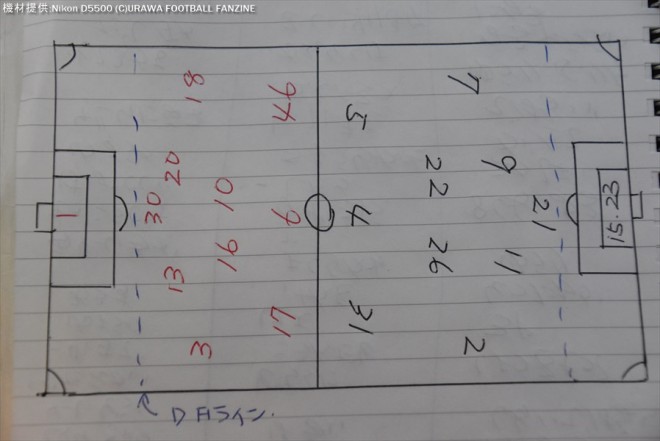 機材提供:Nikon D5500 (C)URAWA FOOTBALL FANZINE
18
46
7
5
20
22
9
1
30
10
4
21
15.23
16
26
11
13
17
31
3
2
DFライン.